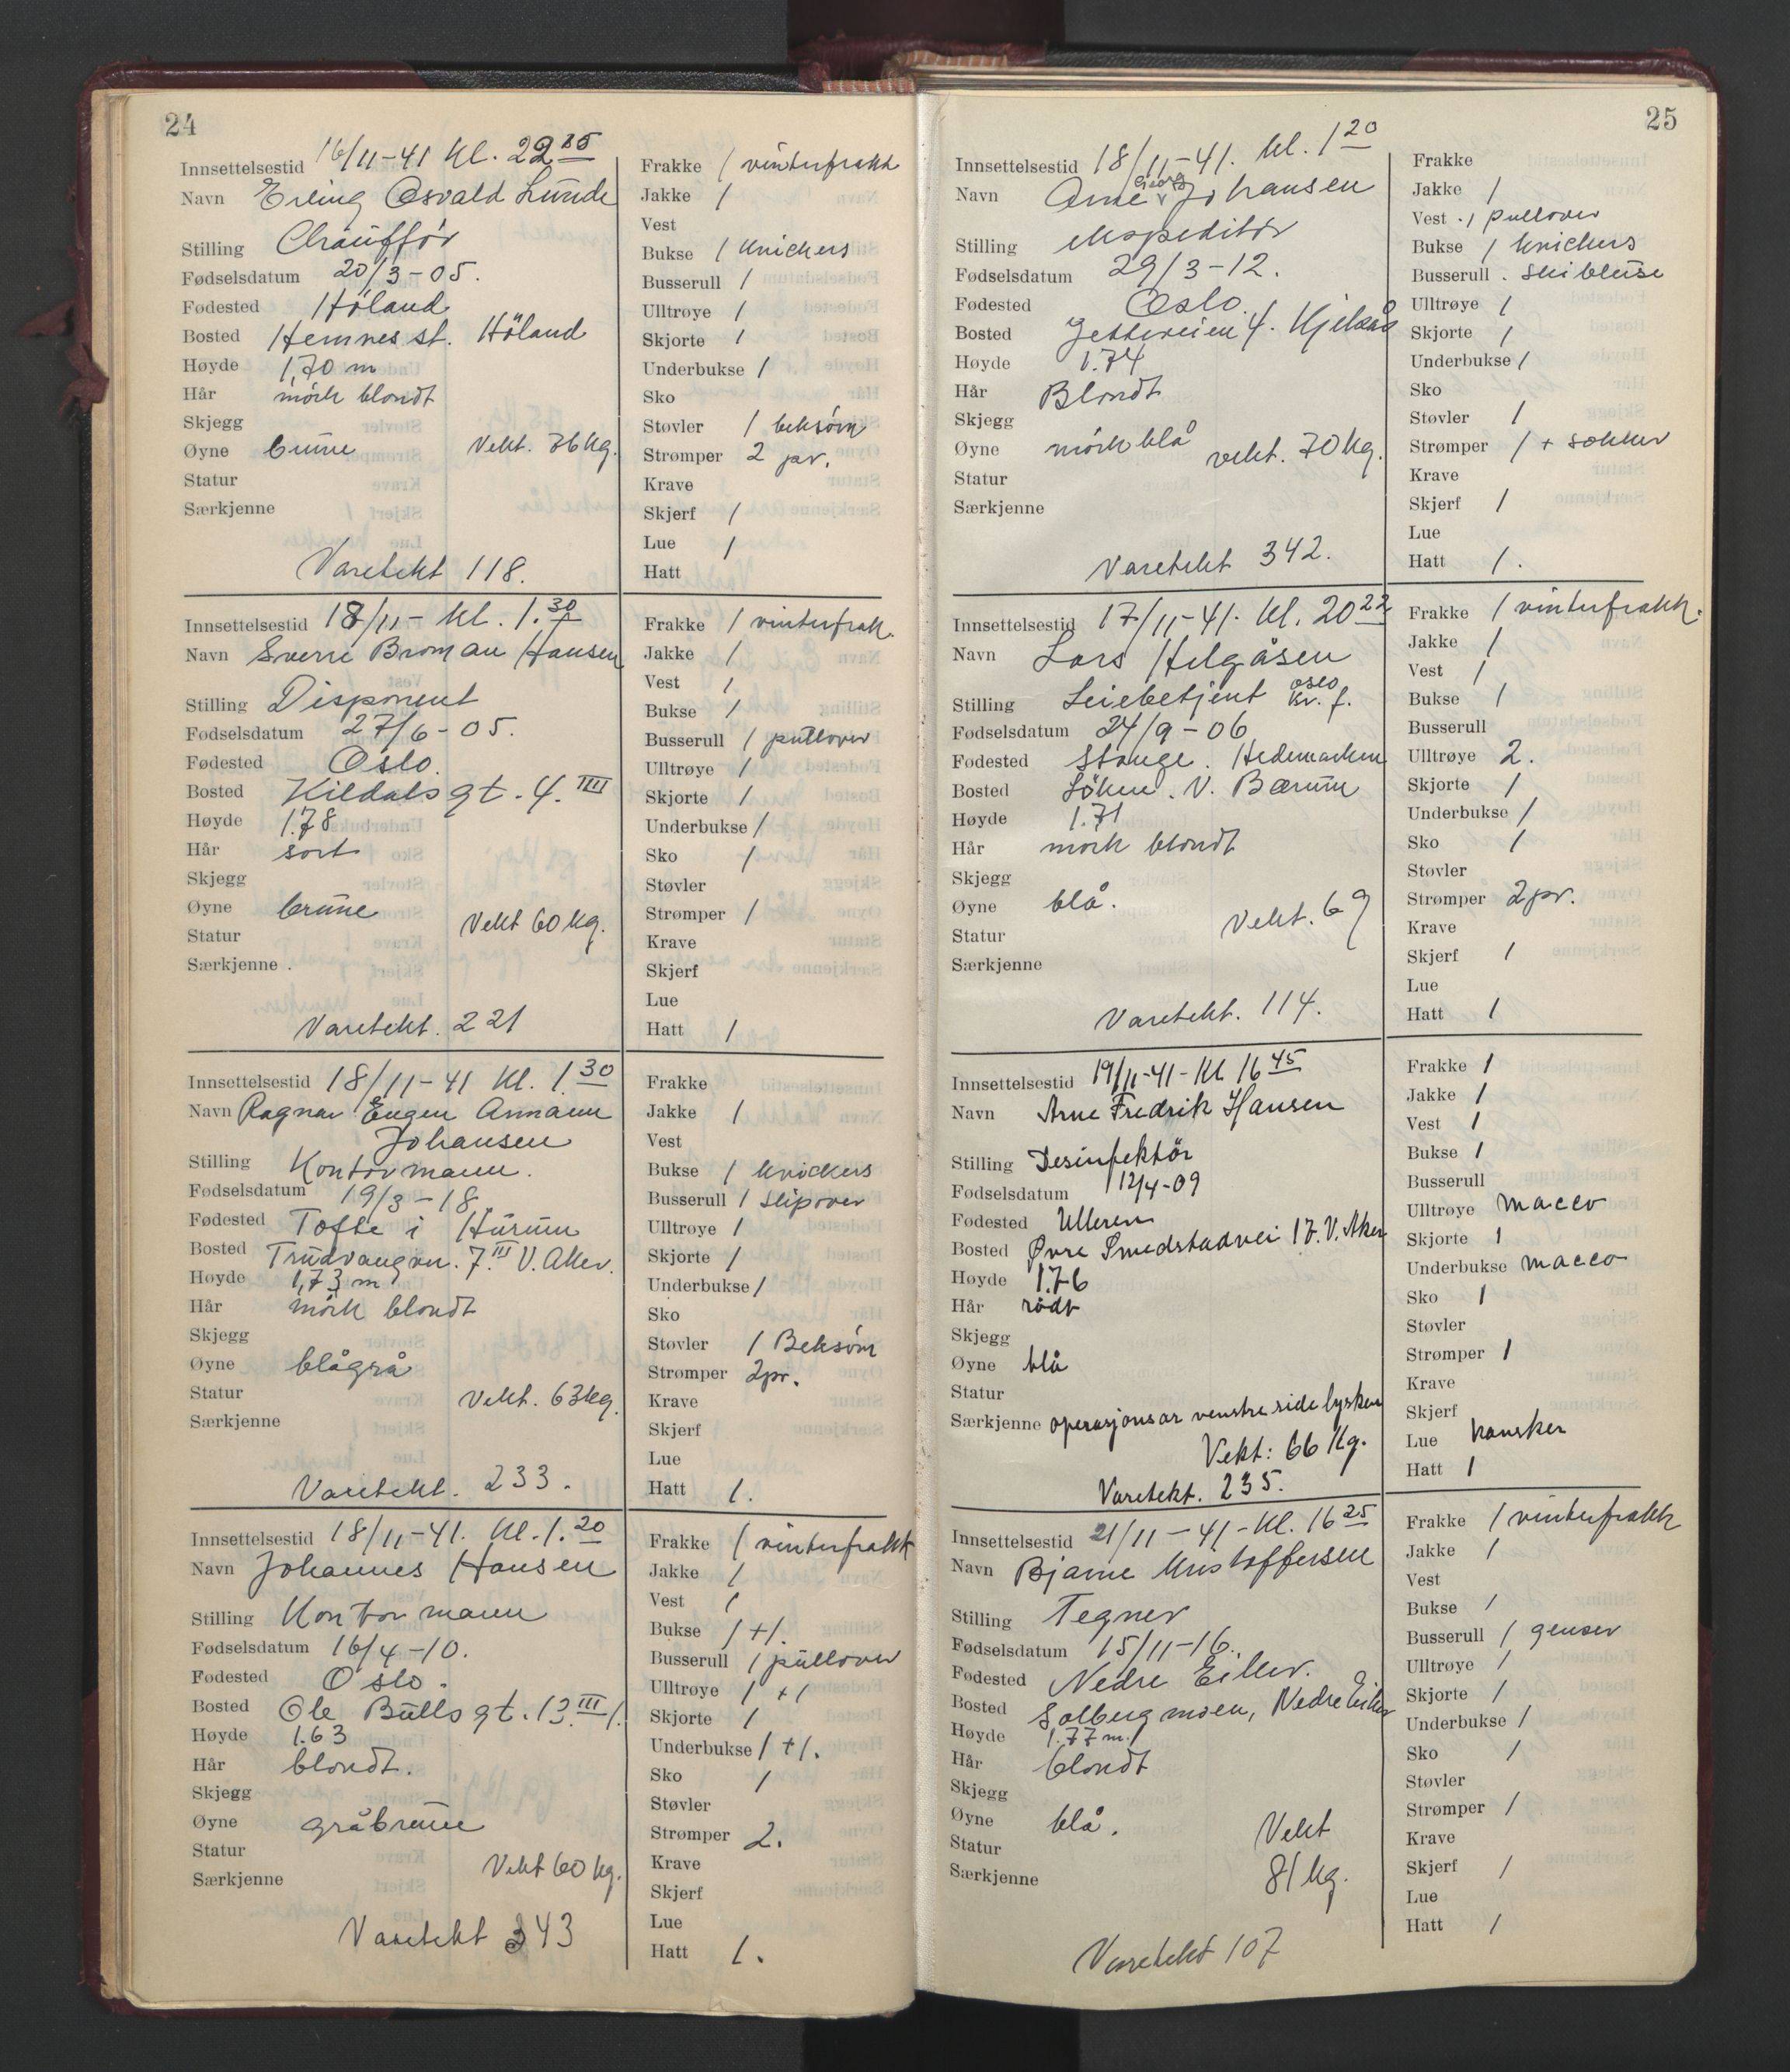 24
Innsettelsestid 16/11-41 Kl. 22 35
Navn Erling Osvald Lunde
Stilling Chauffør
Fødselsdatum 20/3-05.
Fødested Höland
Bosted Hemnes st. Höland
Høyde 1,70 m
Hår mörk blondt
Skjegg
Øyne brune Vekt. 76 kg.
Statur
Særkjenne
Varetekt 118.
Frakke 1 vinterfrakk
Jakke 1
Vest
Bukse 1 knickers
Busserull 1
Ulltrøye 1
Skjorte 1
Underbukse 1
Sko
Støvler 1 beksöm
Strømper 2 par.
Krave
Skjerf 1
Lue 1
Hatt
Innsettelsestid 18/11- kl. 1.30
Navn Sverre Broman Hansen
Stilling Disponent
Fødselsdatum 27/6-05.
Fødested Oslo.
Bosted Kildals gt. 4. IIII
Høyde 1.78
Hår sort
Skjegg
Øyne brune Vekt 60 kg.
Statur
Særkjenne .
Varetekt. 221
Frakke 1 vinterfrakk.
Jakke 1
Vest 1
Bukse 1
Busserull 1 pullover
Ulltrøye 1
Skjorte 1
Underbukse 1
Sko 1
Støvler
Strømper 1
Krave
Skjerf
Lue
Hatt 1
Innsettelsestid 18/11-41 Kl. 1 30
Navn Ragnar Eugen Annann
Johansen
Stilling Kontormann.
Fødselsdatum 19/3-18.
Fødested Tofte i Hurum
Bosted Trudvangvn. 7. III V. Aker.
Høyde 1,73 m
Hår mörk blondt
Skjegg
Øyne blågrå
Statur Vekt. 63 kg.
Særkjenne
Varetekt. 233.
Frakke
Jakke 1
Vest
Bukse 1 knickers
Busserull 1 slipover
Ulltrøye 1
Skjorte 1
Underbukse 1
Sko
Støvler 1 Beksöm
Strømper 2pr.
Krave
Skjerf
Lue
Hatt 1.
Innsettelsestid 18/11-41. Kl. 1.20
Navn Johannes Hansen
Stilling Kontormann
Fødselsdatum 16/4-10.
Fødested Oslo.
Bosted Ole Bulls gt. 13. III
Høyde 1.63
Hår blondt.
Skjegg
Øyne gråbrune
Statur
Særkjenne Vekt 60 kg.
Varetekt 343
Frakke 1 vinterfrakk
Jakke 1
Vest 1
Bukse 1+1.
Busserull 1 pullover
Ulltrøye 1 +1
Skjorte 1
Underbukse 1 +1.
Sko 1
Støvler
Strømper 2.
Krave
Skjerf
Lue
Hatt 1.
25
Innsettelsestid 18/11-41. kl. 1 20
Navn Arne Georg Johansen
Stilling ekspeditör
Fødselsdatum 29/3-12.
Fødested Oslo.
Bosted Jetteveien 4. Kjelsås
Høyde 1.74
Hår Blondt
Skjegg
Øyne mörkblå vekt. 70 kg.
Statur
Særkjenne
Varetekt 342.
Frakke
Jakke 1
Vest . 1 pullover
Bukse 1 knickers
Busserull . skibluse
Ulltrøye 1
Skjorte 1
Underbukse 1
Sko
Støvler 1
Strømper 1 + sokker
Krave
Skjerf 1
Lue
Hatt 1.
Innsettelsestid 17/11-41. kl. 20 22
Navn Lars Helgåsen
Stilling Leiebetjent Oslo Kr. f.
Fødselsdatum 24/9-06
Fødested Stange. Hedemarken
Bosted Löken. V. Bærum
Høyde 1.71
Hår mörk blondt
Skjegg
Øyne blå. Vekt. 69
Statur
Særkjenne
Varetekt. 114.
Frakke 1 vinterfrakk.
Jakke 1
Vest 1
Bukse 1
Busserull
Ulltrøye 2.
Skjorte 1
Underbukse 1
Sko 1
Støvler
Strømper 2pr.
Krave
Skjerf 1
Lue
Hatt 1
Innsettelsestid 19/11-41-Kl 16 45
Navn Arne Fredrik Hansen
Stilling Desinfektör
Fødselsdatum 12/4-09
Fødested Ulleren
Bosted Øvre Smedstadvei 17. V. Aker
Høyde 1.76
Hår rödt
Skjegg
Øyne blå
Statur
Særkjenne operasjonsar venstre side lysken
Vekt: 66 Kg.
Varetekt. 235.
Frakke 1
Jakke 1
Vest 1
Bukse 1
Busserull
Ulltrøye macco
Skjorte 1
Underbukse macco
Sko 1
Støvler
Strømper 1
Krave
Skjerf
Lue hansker
Hatt 1
Innsettelsestid 21/11-41-Kl. 16 25
Navn Bjarne Kristoffersen
Stilling Tegner
Fødselsdatum 15/11-16.
Fødested Nedre Eiker.
Bosted Solbergmoen, Nedre Eiker
Høyde 1.77 m.
Hår blondt
Skjegg
Øyne blå. Vekt
Statur
Særkjenne 81 kg.
Varetekt 107
Frakke 1 vinterfrakk
Jakke 1
Vest
Bukse 1
Busserull 1 genser
Ulltrøye 1
Skjorte 1
Underbukse 1
Sko 1
Støvler
Strømper 1
Krave
Skjerf 1
Lue
Hatt 1